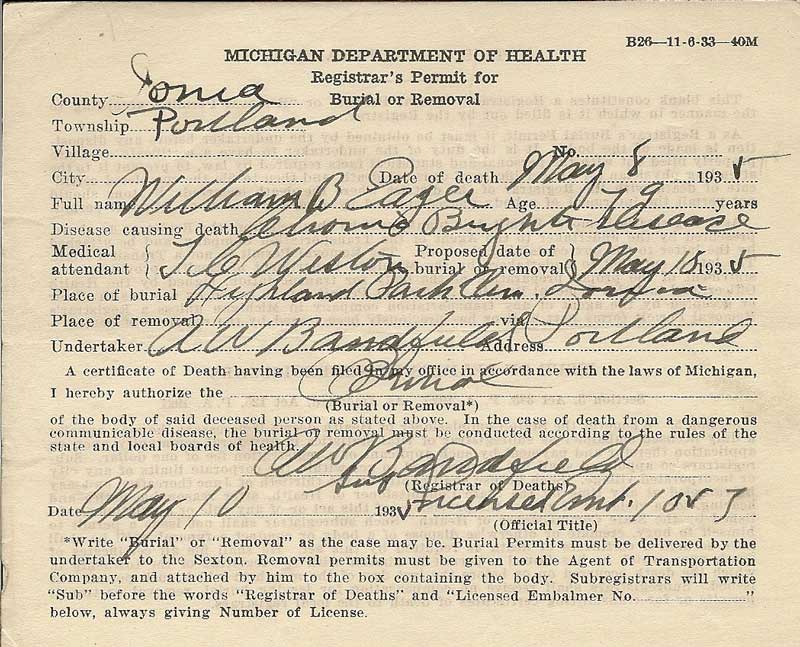 B26—11-6-33—40M
MICHIGAN DEPARTMENT OF HEALTH
Registrar's Permit for
Burial or Removal
County Ionia
Township Portland
Village No.
City Date of death May 8 1935
Full name William B Eager Age 79 years
Disease causing death Chronic Brights disease
Medical attendant } Proposed date of burial or removal } May 1935
Place of burial Highland Park Cem.
Place of removal via
Undertaker A W Bandfield Address Portland
A certificate of Death having been filed in my office in accordance with the laws of Michigan,
I hereby authorize the Burial
(Burial or Removal*)
of the body of said deceased person as stated above. In the case of death from a dangerous
communicable disease, the burial or removal must be conducted according to the rules of the
state and local boards of health.
A W Bandfield
Sub (Registrar of Deaths)
Date May 10 1935 Licensed Emb.
(Official Title)
*Write "Burial" or "Removal" as the case may be. Burial Permits must be delivered by the
undertaker to the Sexton. Removal permits must be given to the Agent of Transportation
Company, and attached by him to the box containing the body. Subregistrars will write
"Sub" before the words "Registrar of Deaths" and "Licensed Embalmer No. "
below, always giving Number of License.